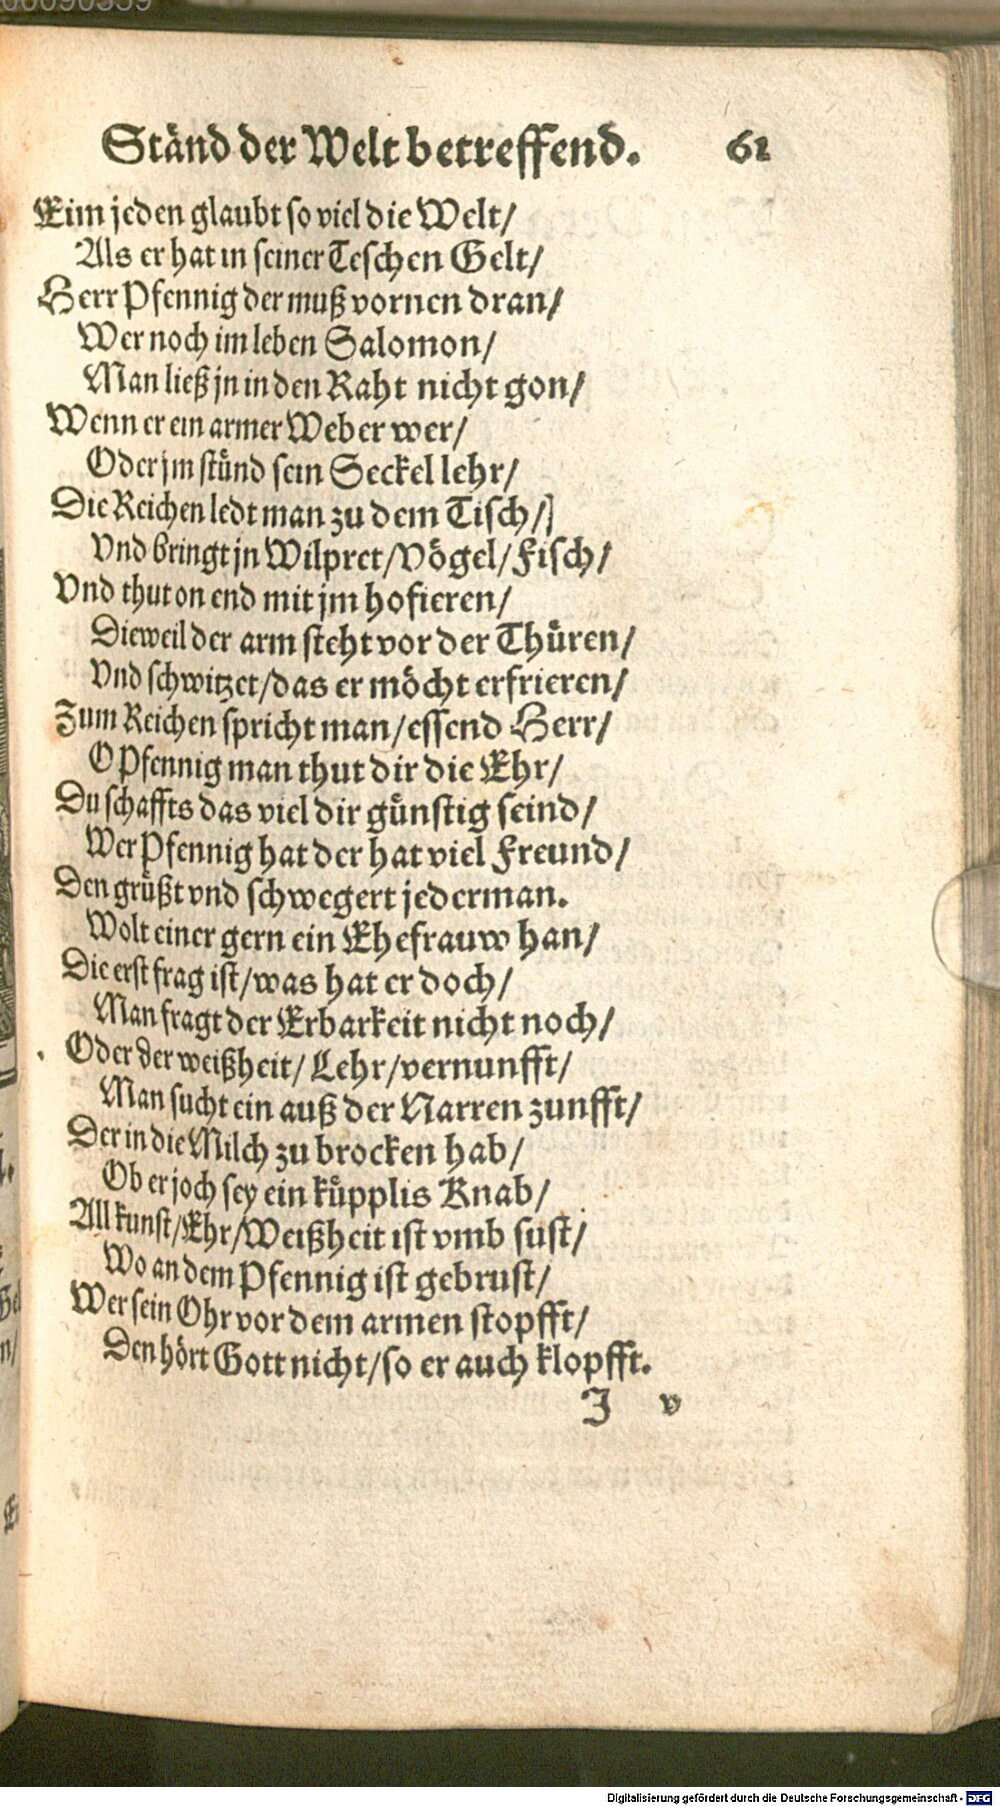 Ständ der Welt betreffend. 61
Eim jeden glaubt so viel die Welt/
Als er hat in seiner Teschen Gelt/
Herr Pfennig der muß vornen dran/
Wer noch im leben Salomon/
Man ließ jn in den Raht nicht gon/
Wenn er ein armer Weber wer/
Oder jm stünd sein Seckel lehr/
Die Reichen ledt man zu dem Tisch/
Vnd bringt jn Wilpret/Vögel/Fisch/
Vnd thut on end mit jm hofieren/
Dieweil der arm steht vor der Thüren/
Vnd schwitzet/das er möcht erfrieren/
Zum Reichen spricht man/essend Herr/
O Pfennig man thut dir die Ehr/
Du schaffts das viel dir günstig seind/
Wer Pfennig hat der hat viel Freund/
Den grüßt vnd schwegert jederman.
Wolt einer gern ein Ehefrauw han/
Die erst frag ist/was hat er doch/
Man fragt der Erbarkeit nicht noch/
Oder der weißheit/ Lehr/vernunfft/
Man sucht ein auß der Narren zunfft/
Der in die Milch zu brocken hab/
Ob er joch sey ein küpplis Knab/
All kunst/Ehr/Weißheit ist vmb sust/
Wo an dem Pfennig ist gebrust/
Wer sein Ohr vor dem armen stopfft/
Den hört Gott nicht/so er auch klopfft.
J v
Digitalisierung gefördert durch die Deutsche Forschungsgemeinschaft - DFG